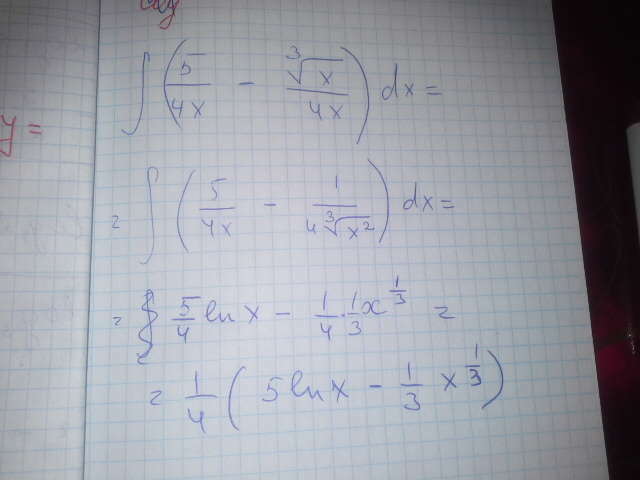 ∫ (5/4x − ∛x/4x) dx =
= ∫ (5/4x − 1/4∛x²) dx =
= 5/4 ln x − 1/4 · 1/3 x^1/3 =
= 1/4 (5 ln x − 1/3 x^1/3)
y =